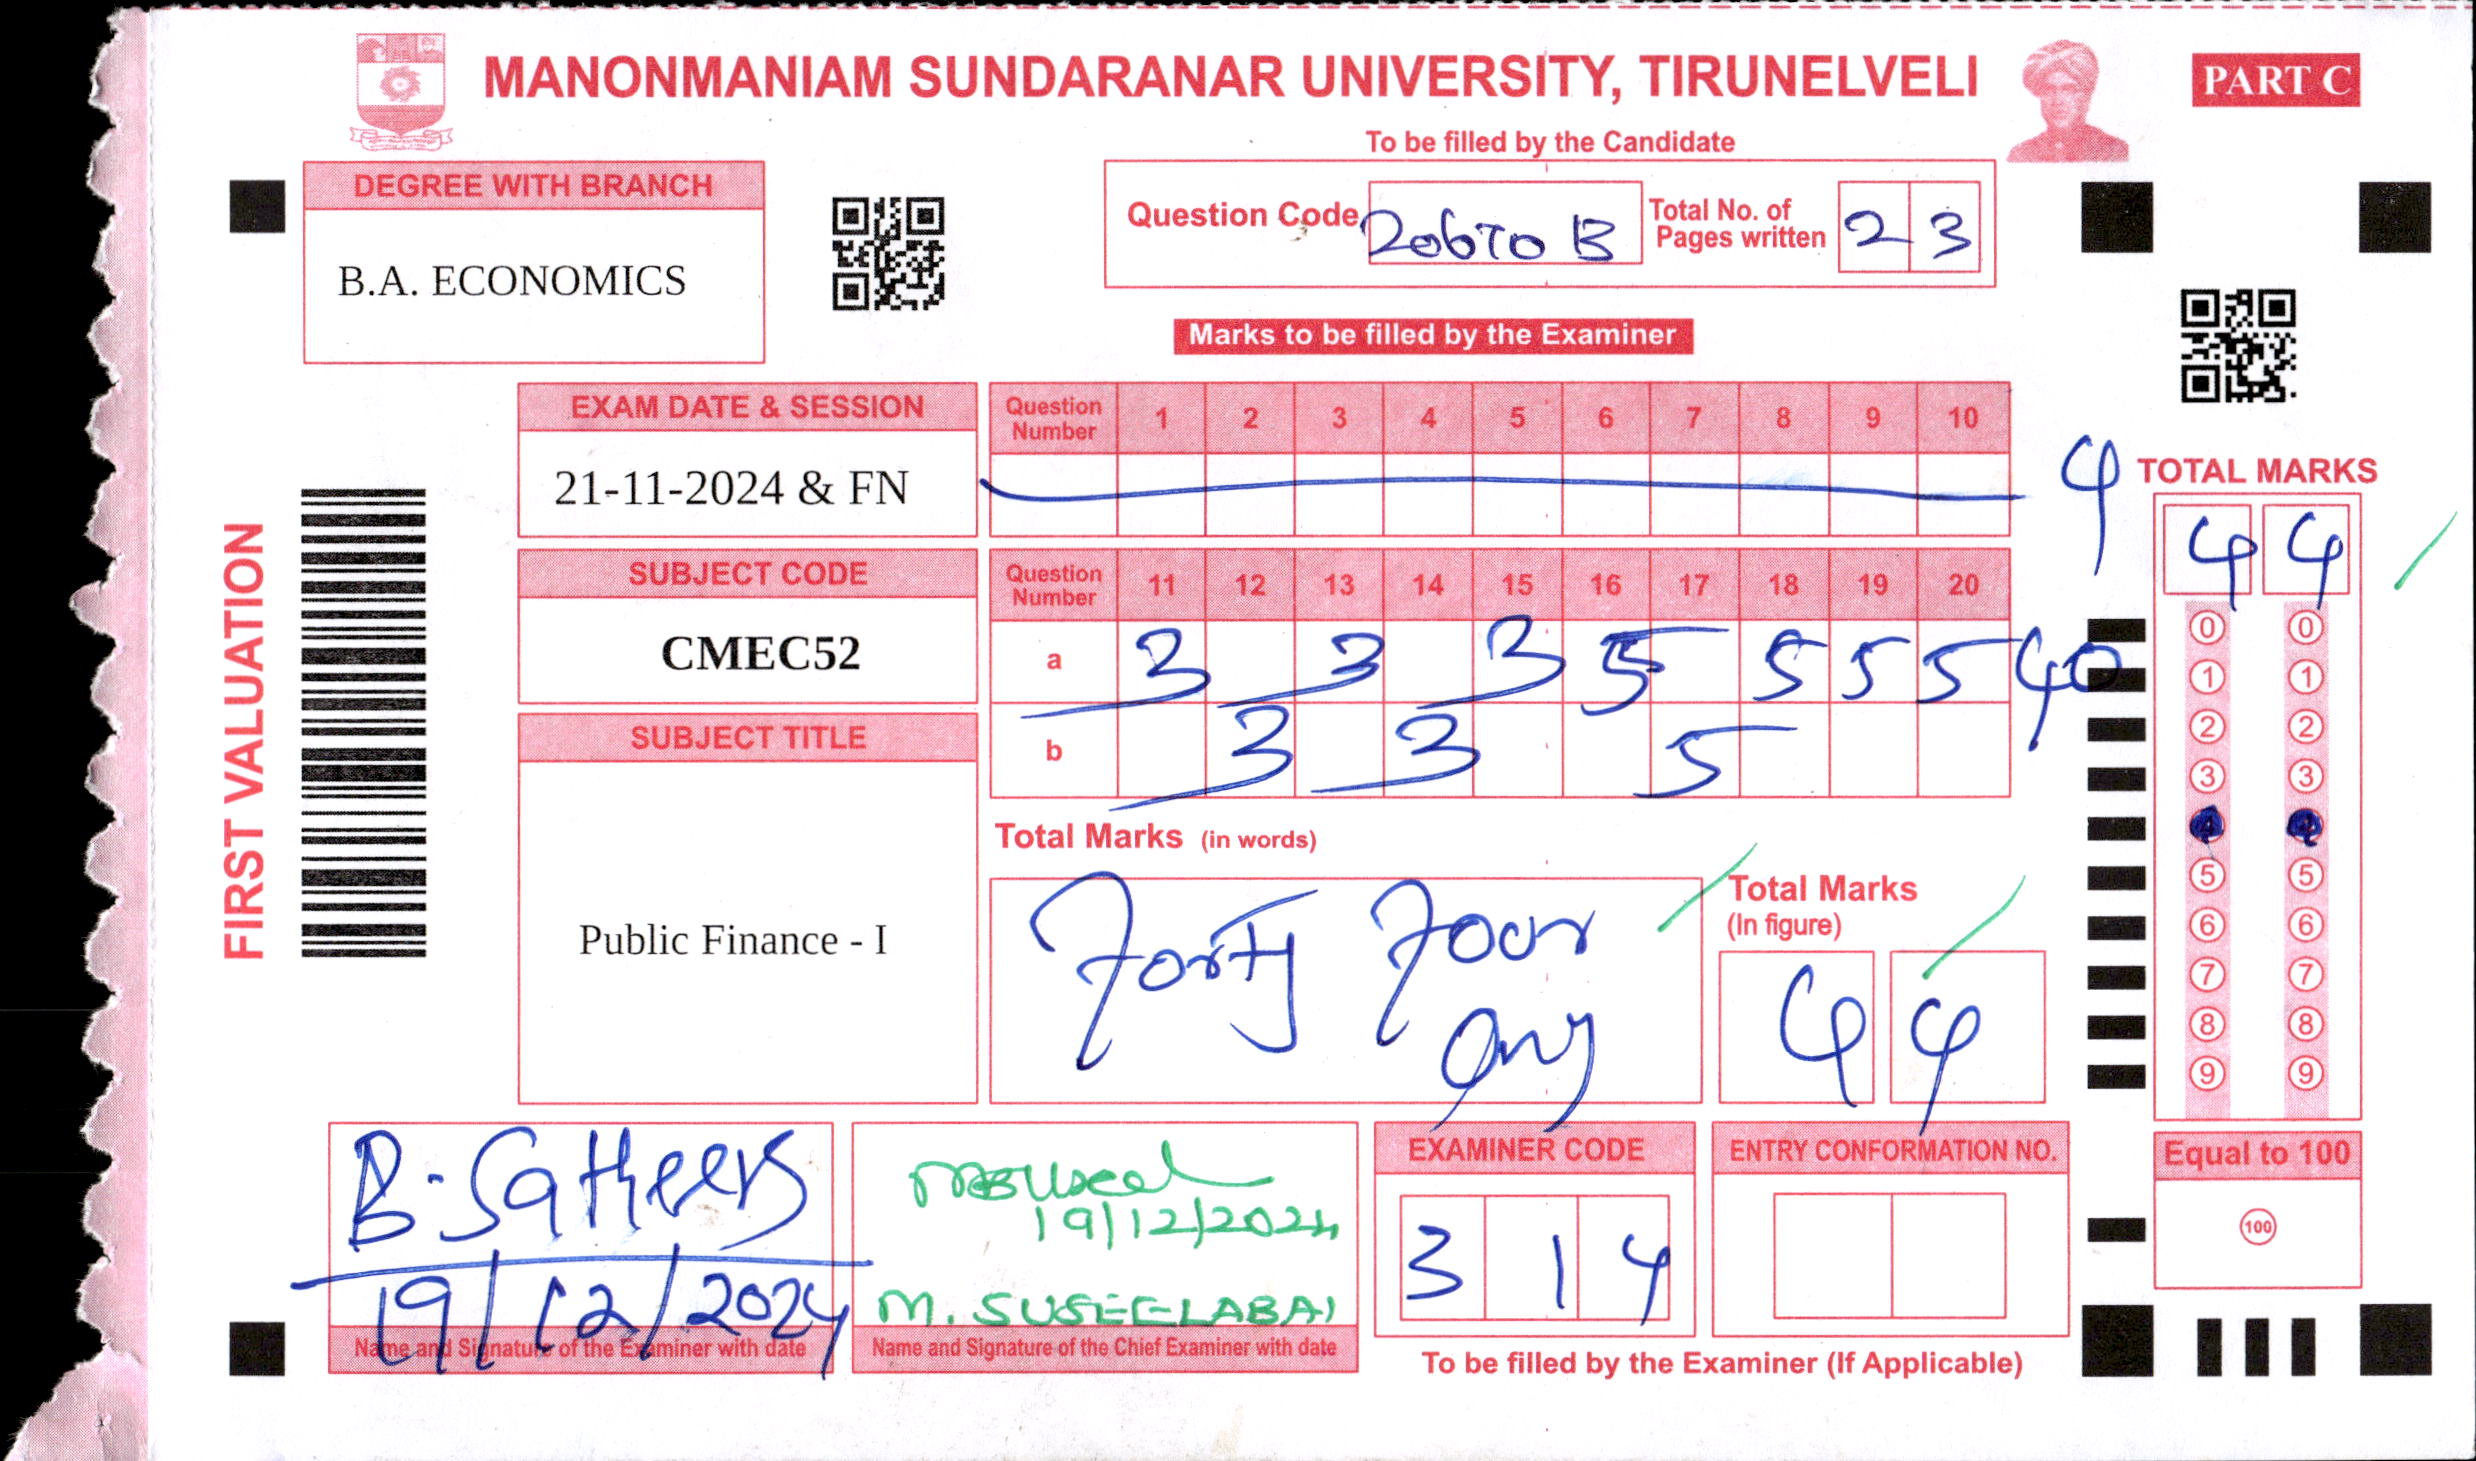 MANONMANIAM SUNDARANAR UNIVERSITY, TIRUNELVELI
PART C
To be filled by the Candidate
DEGREE WITH BRANCH
B.A. ECONOMICS
Question Code 20670 B
Total No. of Pages written 2 3
Marks to be filled by the Examiner
EXAM DATE & SESSION
21-11-2024 & FN
Question Number 1 2 3 4 5 6 7 8 9 10
4
TOTAL MARKS
4 4
SUBJECT CODE
CMEC52
Question Number 11 12 13 14 15 16 17 18 19 20
a 3 3 3 5 5 5 5 40
b 3 3 5
SUBJECT TITLE
Public Finance - I
FIRST VALUATION
Total Marks (in words)
Forty Four only
Total Marks (In figure)
4 4
0 0
1 1
2 2
3 3
4 4
5 5
6 6
7 7
8 8
9 9
B. Satheesh
19/12/2024
Name and Signature of the Examiner with date
19/12/2024
M. SUSEELABAI
Name and Signature of the Chief Examiner with date
EXAMINER CODE
3 1 4
ENTRY CONFORMATION NO.
To be filled by the Examiner (If Applicable)
Equal to 100
100